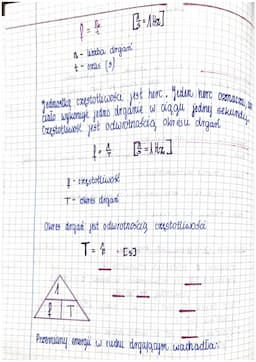 f = n/t [1/s = 1 Hz]
n - liczba drgań
t - czas (s)
Jednostką częstotliwości jest herc. Jeden herc oznacza, że
ciało wykonuje jedno drganie w ciągu jednej sekundy.
Częstotliwość jest odwrotnością okresu drgań
f = 1/T [1/s = 1 Hz]
f - częstotliwość
T - okres drgań
Okres drgań jest odwrotnością częstotliwości
T = 1/f = [s]
1
f T
Przemiany energii w ruchu drgającym wahadła: